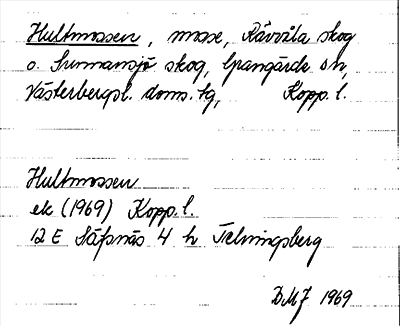 Hultmossen, mosse, Rävvåla skog
o. Sunnansjö skog, Grangärde sn,
Västerbergsl. doms. tg, Kopp. l.
Hultmossen
ek (1969) Kopp. l.
12 E Säfsnäs 4 h
DMJ 1969